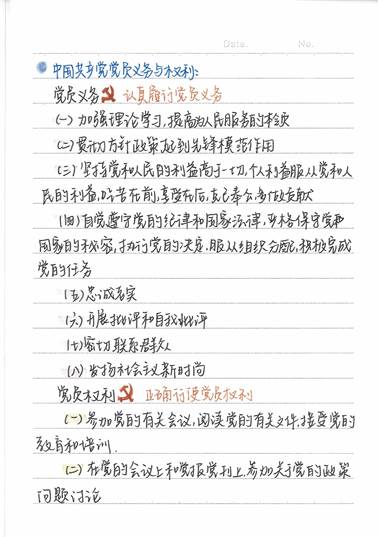 Date.    No.
中国共产党党员义务与权利:
党员义务 认真履行党员义务
(一) 加强理论学习,提高为人民服务的本领
(二) 贯彻方针政策,起到先锋模范作用
(三) 坚持党和人民的利益高于一切,个人利益服从党和人
民的利益,吃苦在前,享受在后,克己奉公,多做贡献
(四) 自觉遵守党的纪律和国家法律,严格保守党和
国家的秘密,执行党的决定,服从组织分配,积极完成
党的任务
(五) 忠诚老实
(六) 开展批评和自我批评
(七) 密切联系群众
(八) 发扬社会主义新时尚
党员权利 正确行使党员权利
(一) 参加党的有关会议,阅读党的有关文件,接受党的
教育和培训.
(二) 在党的会议上和党报党刊上,参加关于党的政策
问题讨论